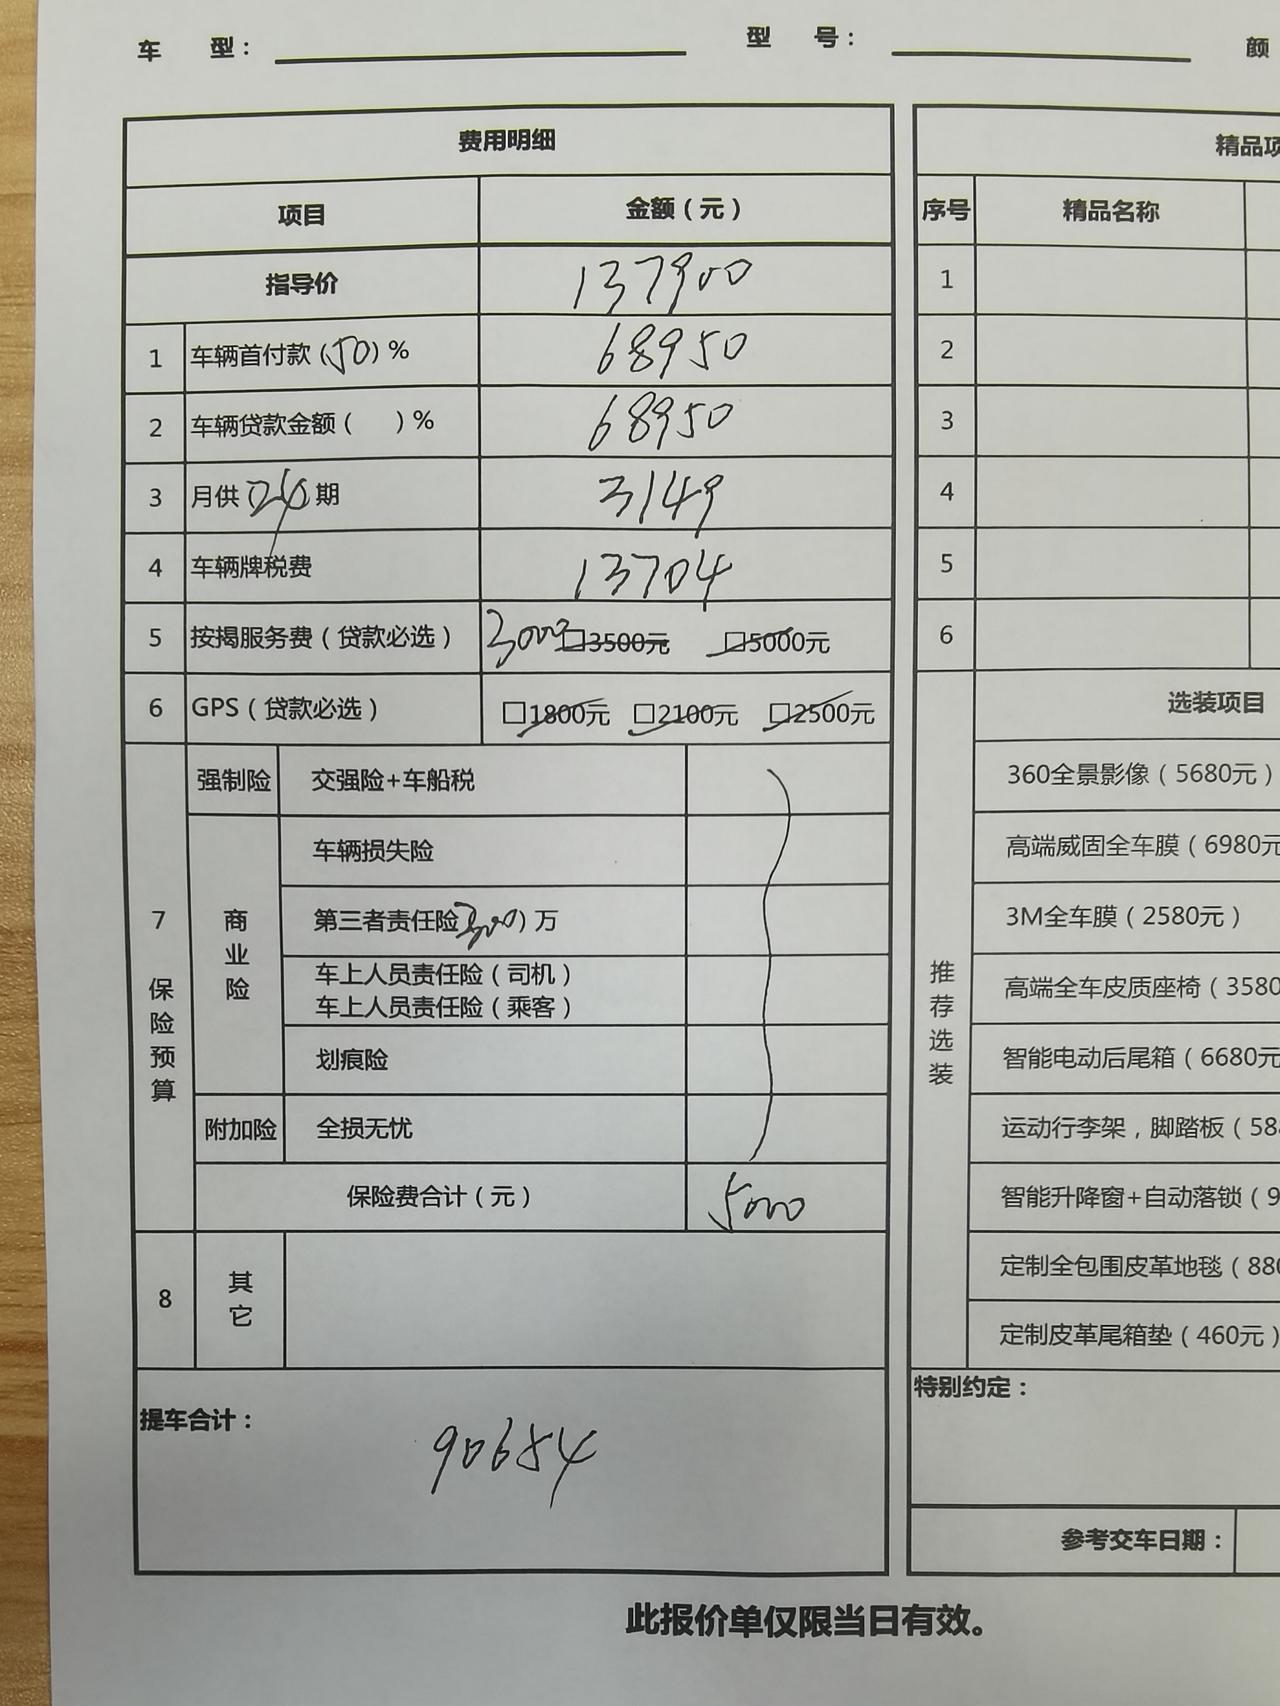 车 型： 型 号： 颜
费用明细
项目 金额（元）
指导价 137900
1 车辆首付款（50）% 68950
2 车辆贷款金额（ ）% 68950
3 月供 24 期 3149
4 车辆牌税费 13704
5 按揭服务费（贷款必选） 3000 □3500元 □5000元
6 GPS（贷款必选） □1800元 □2100元 □2500元
7 保险预算
强制险 交强险+车船税
商业险
车辆损失险
第三者责任险300）万
车上人员责任险（司机）
车上人员责任险（乘客）
划痕险
附加险 全损无忧
保险费合计（元） 5000
8 其它
提车合计：
90654
精品项
序号 精品名称
1
2
3
4
5
6
推荐选装
选装项目
360全景影像（5680元）
高端威固全车膜（6980元
3M全车膜（2580元）
高端全车皮质座椅（3580
智能电动后尾箱（6680元
运动行李架，脚踏板（588
智能升降窗+自动落锁（9
定制全包围皮革地毯（880
定制皮革尾箱垫（460元）
特别约定：
参考交车日期：
此报价单仅限当日有效。